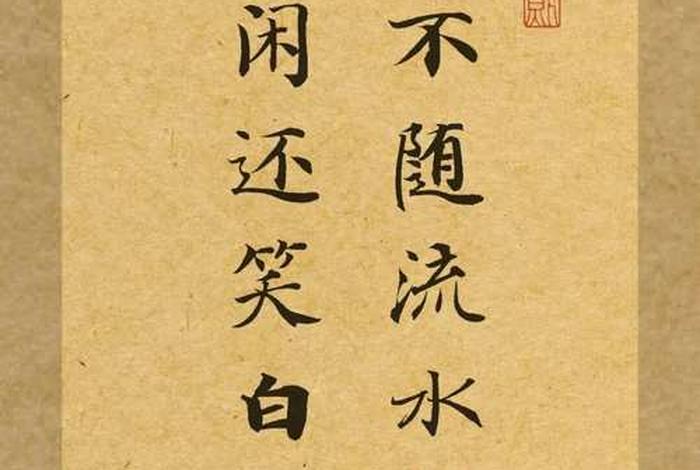 不随流水
闲还笑白